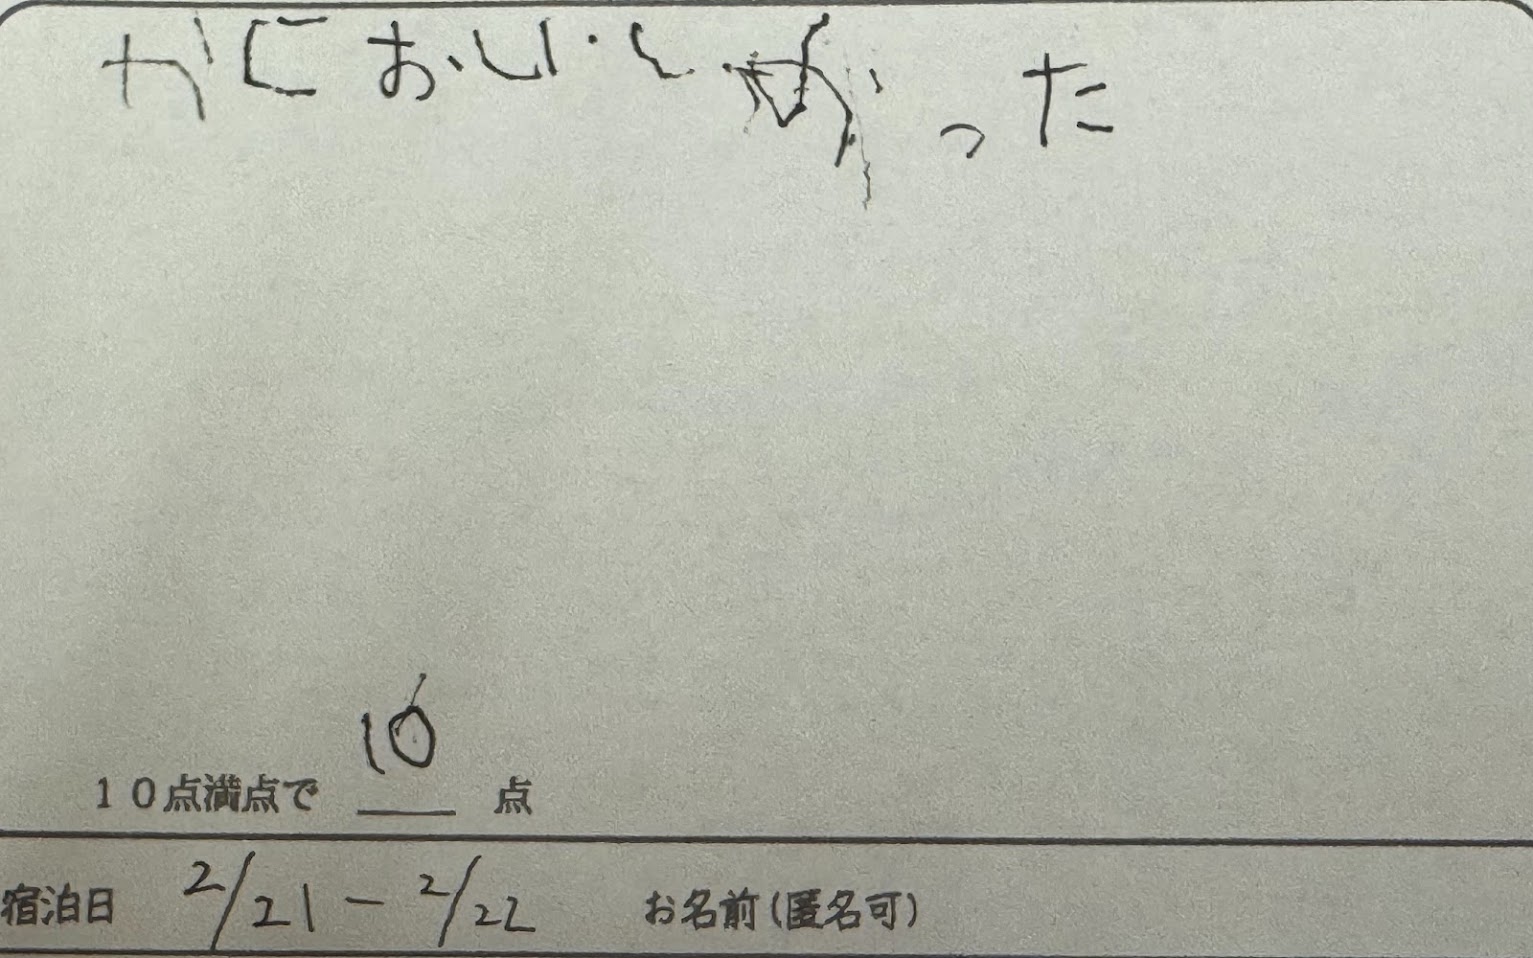 かにおいしかった
10
10点満点で 点
宿泊日 2/21-2/22 お名前(匿名可)